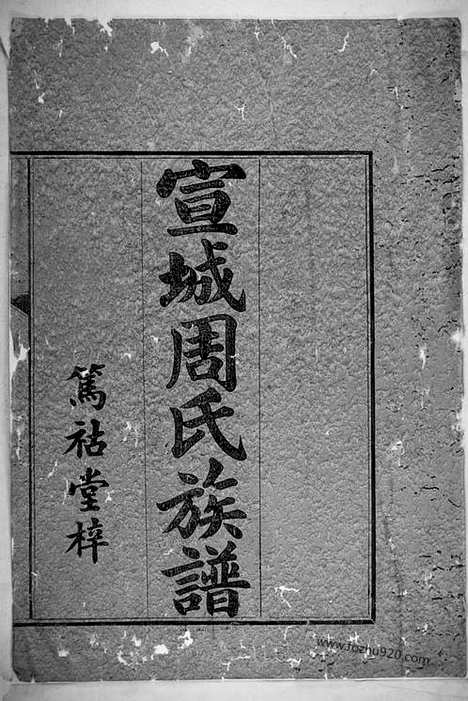 宣城周氏族譜
篤祜堂梓
www.fozhu920.com